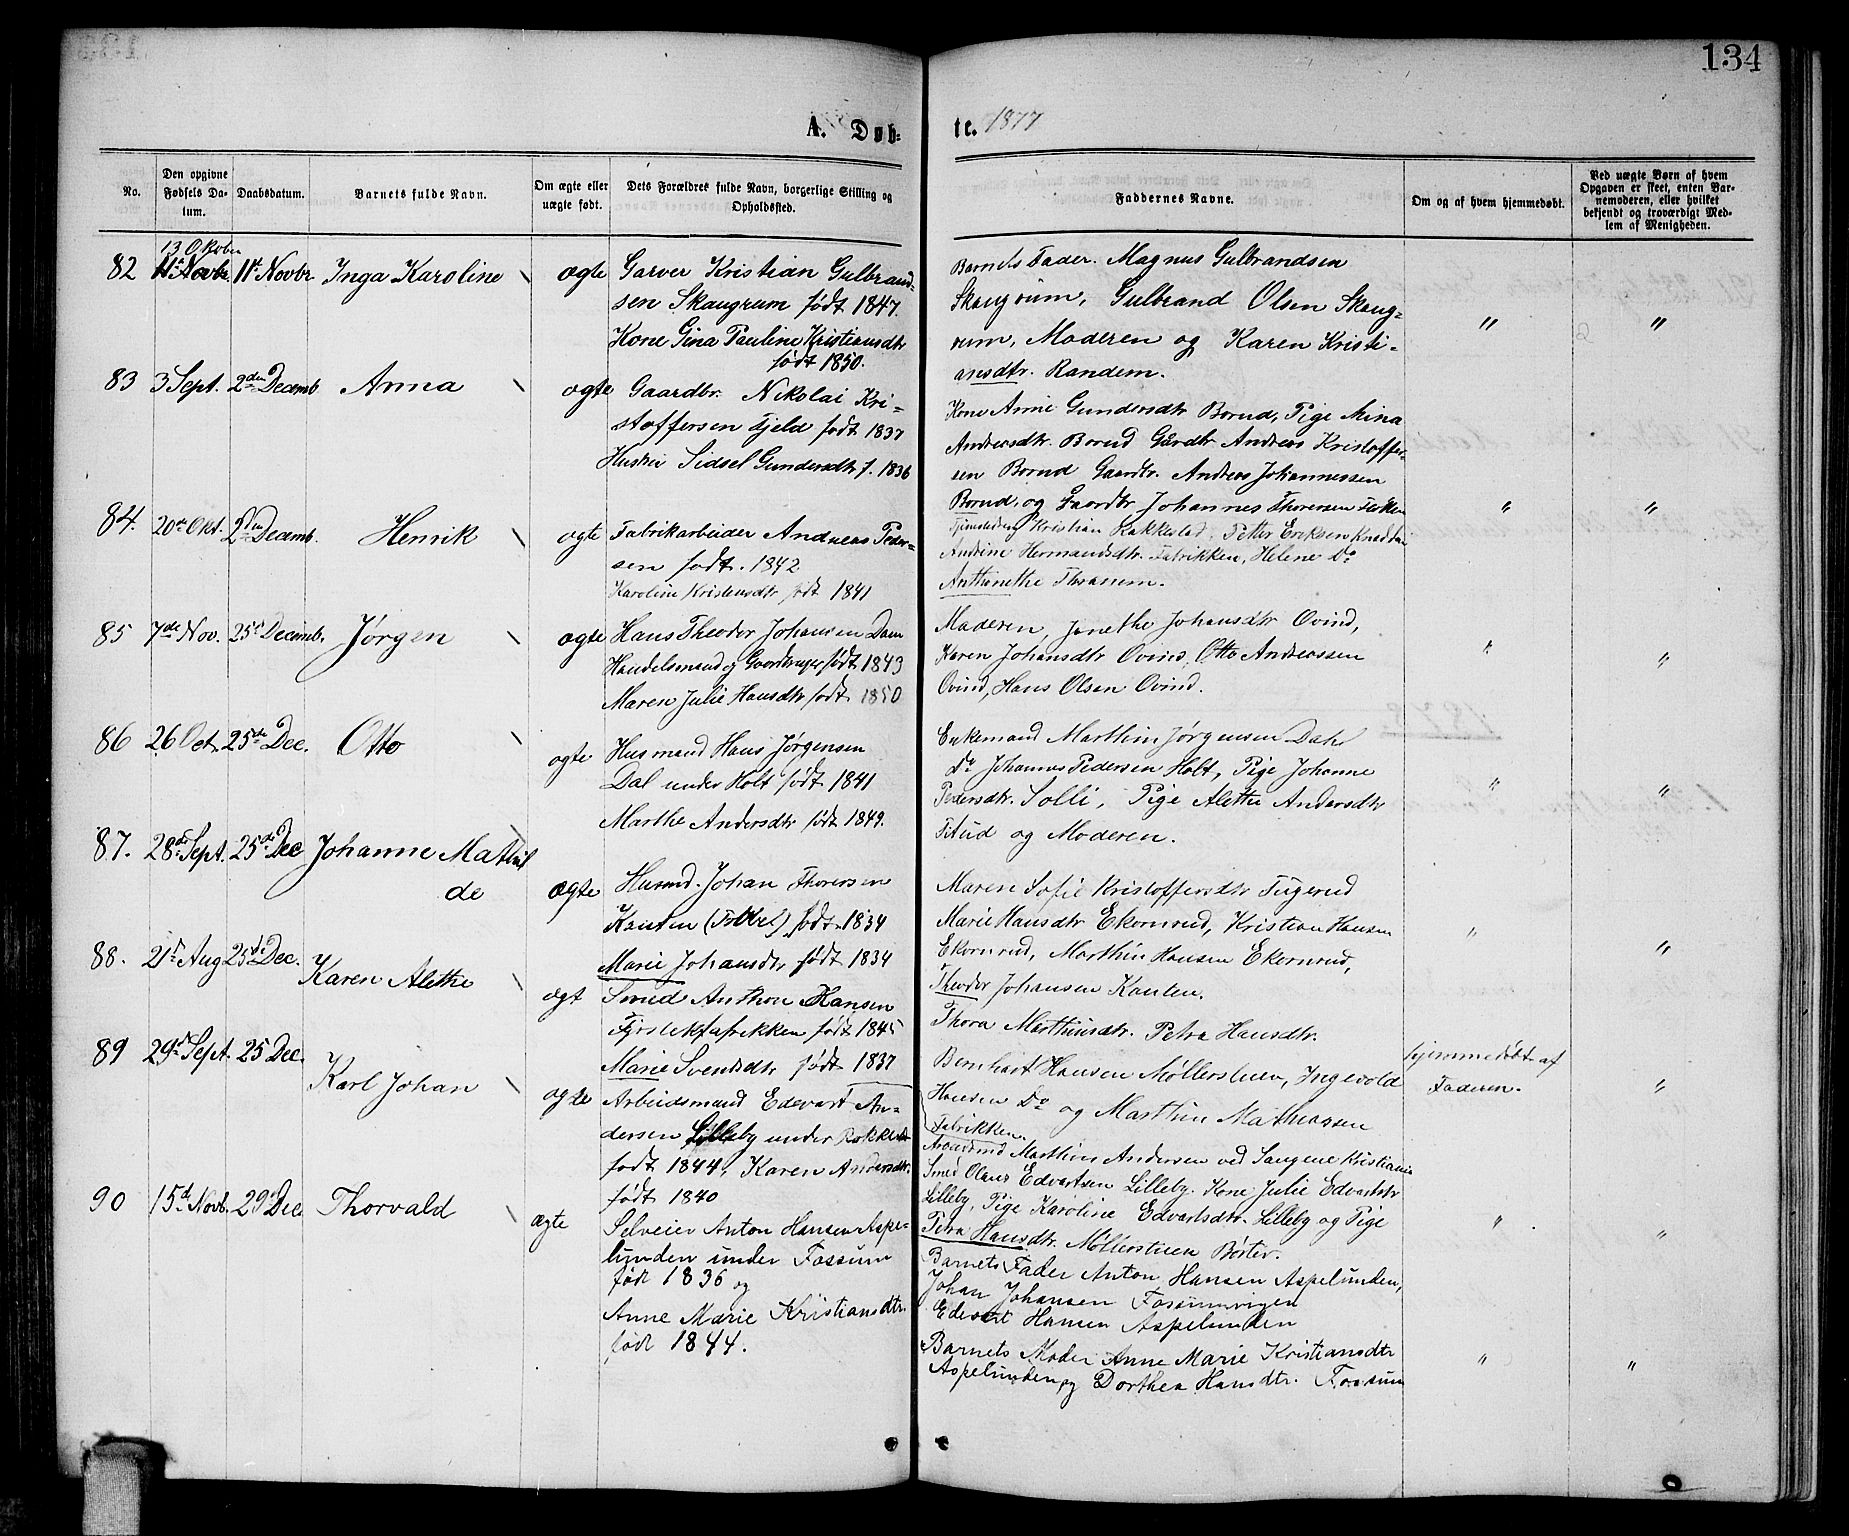 134
A. Døb-
te. 1877
No.
Den opgivne Fødsels Datum.
Daabsdatum.
Barnets fulde Navn.
Om ægte eller uægte født.
Dets Forældres fulde Navn, borgerlige Stilling og Opholdssted.
Faddernes Navne.
Om og af hvem hjemmedøbt.
Ved uægte Børn af hvem Opgaven er skeet, enten Barnemoderen, eller hvilket bekjendt og troværdigt Medlem af Menigheden.
82 13 Okober 11te Novbr Inga Karoline ægte
Garver Kristian Gulbrand-
sen Skaugrum født 1847.
Kone Gina Pauline Kristiansdtr
født 1850.
Barnets Fader. Magnus Gulbrandsen
Skaugrum, Gulbrand Olsen Skaug-
rum, Moderen og Karen Kristi-
ansdtr. Randem.
" "
83 3 Sept. 2den Decemb Anna ægte
Gaardbr. Nikolai Kri-
stoffersen Fjeld født 1837
Hustru Sidsel Gundersdtr f. 1836
Kone Anne Gundersdtr Borud, Pige Mina
Andreasdtr. Borud Gardbr Andreas Kristoffer-
sen Borud Gaardbr. Andreas Johannessen
Borud, og Gaardbr Johannes Thoversen
" "
84. 20de Okt. 2den Decemb. Henrik ægte
Fabrikarbeider Andreas Peder-
sen født. 1842
Karoline Kristensdtr født 1841
Kristian Rakkestad, Petter Eriksen
Andrine Hermandsdtr. Fabrikken, Helene Do
Anthonethe Thranem.
85 7de Nov. 25de Decemb. Jørgen ægte
Hans Theodor Johansen Dam
Handelsmand og Gaardbruger født 1843
Maren Julie Hansdtr født 1850
Moderen, Janethe Johansdtr Ovind,
Karen Johansdtr Ovind, Otto Andreassen
Ovind, Hans Olsen Ovind.
" "
86 26 Oct. 25de Dec. Otto ægte
Husmand Hans Jørgensen
Dal under Holt født 1841
Marthe Andersdtr født 1849.
Enkemand Marthin Jørgensen Dahl
Do Johannes Pedersen Holt, Pige Johanne
Pedersdtr. Solli, Pige Alethe Andersdtr
og Moderen.
" "
87. 28de Sept. 25de Dec Johanne Mathil
de ægte
Husmd. Johan Thoversen
Kauten født 1834
Marie Johansdtr født 1834
Maren Sofie Kristoffersdtr Tugerud
Marie Hansdtr Ekornrud, Kristian Hansen
Ekornrud, Marthin Hansen Ekornrud,
Theodor Johansen Kauten.
" "
88. 21de Aug 25de Dec. Karen Alethe ægt
Svend Anthon Hansen
Fyrstikfabrikken født 1845
Marie Svendsdtr født 1837
Thora Marthinsdtr. Petra Hansdtr.
Bernhart Hansen Møllerstuen, Ingevold
Hansen Do og Marthin Mathiassen
Fabrikken.
hjemmedøbt af
Faderen. "
89 29de Sept. 25 Dec. Karl Johan ægte
Arbeidsmand Edevart An-
dersen Lilleby under
født 1844, Karen Andersdtr.
født 1840
Marthin Andersen ved Saugene Kristiania
Smed Olaus Edvartsen Lilleby. Kone Julie Edvartsdtr
Lilleby, Pige Karoline Edvartsdtr. Lilleby og Pige
Petra Hansdtr. Møllerstuen Børter.
" "
90 15de Novb. 29 Dec. Thorvald ægte
Selveier Anton Hansen Aspe-
lunden under Fossum
født 1836 og
Anne Marie Kristiansdtr.
født 1844.
Barnets Fader Anton Hansen Aspelunden,
Johan Johansen Fossumvigen
Edevart Hansen Aspelunden
Barnets Moder Anne Marie Kristiansdtr
Aspelunden og Dorthea Hansdtr. Fossum
" "